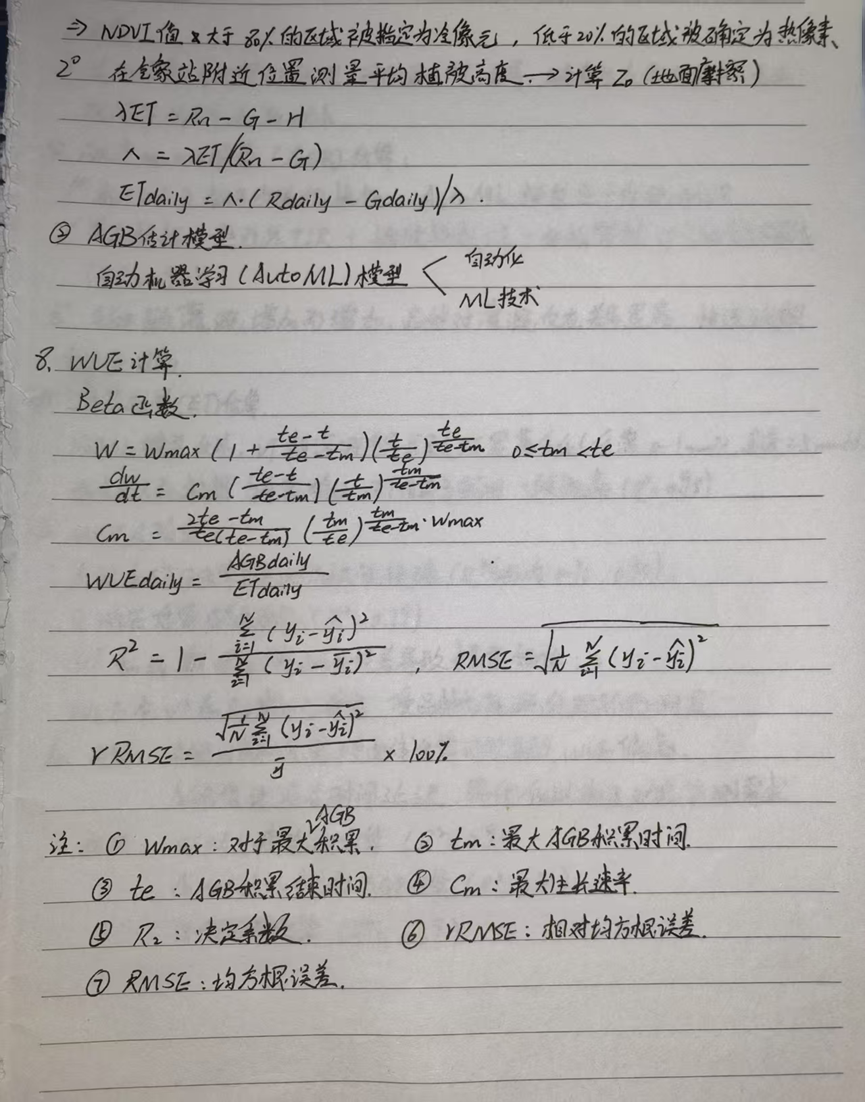 ⇒ NDVI值大于80%的区域被指定为冷像元，低于20%的区域被确定为热像素、
2° 在气象站附近位置测量平均植被高度 → 计算 Z₀ (地面摩擦)
λET = Rn - G - H
Λ = λET/(Rn - G)
ETdaily = Λ·(Rdaily - Gdaily)/λ.
② AGB估计模型.
自动机器学习(AutoML)模型 < 自动化
ML技术
8. WUE计算.
Beta函数.
W = Wmax (1 + \frac{te-t}{te-tm})(\frac{t}{te})^{\frac{te}{te-tm}} 0≤tm<te
\frac{dw}{dt} = Cm (\frac{te-t}{te-tm}) (\frac{t}{tm})^{\frac{tm}{te-tm}}
Cm = \frac{2te-tm}{te(te-tm)} (\frac{tm}{te})^{\frac{tm}{te-tm}}·Wmax
WUEdaily = \frac{AGBdaily}{ETdaily}
R² = 1 - \frac{\sum_{i=1}^{N} (yi-ŷi)²}{\sum_{i=1}^{N} (yi-ȳi)²}, RMSE = \sqrt{\frac{1}{N} \sum_{i=1}^{N} (yi-ŷi)²}
rRMSE = \frac{\sqrt{\frac{1}{N} \sum_{i=1}^{N} (yi-ŷi)²}}{ȳ} × 100%
注: ① Wmax: 对于最大AGB积累. ② tm: 最大AGB积累时间.
③ te: AGB积累结束时间. ④ Cm: 最大生长速率.
⑤ R₂: 决定系数. ⑥ rRMSE: 相对均方根误差.
⑦ RMSE: 均方根误差.